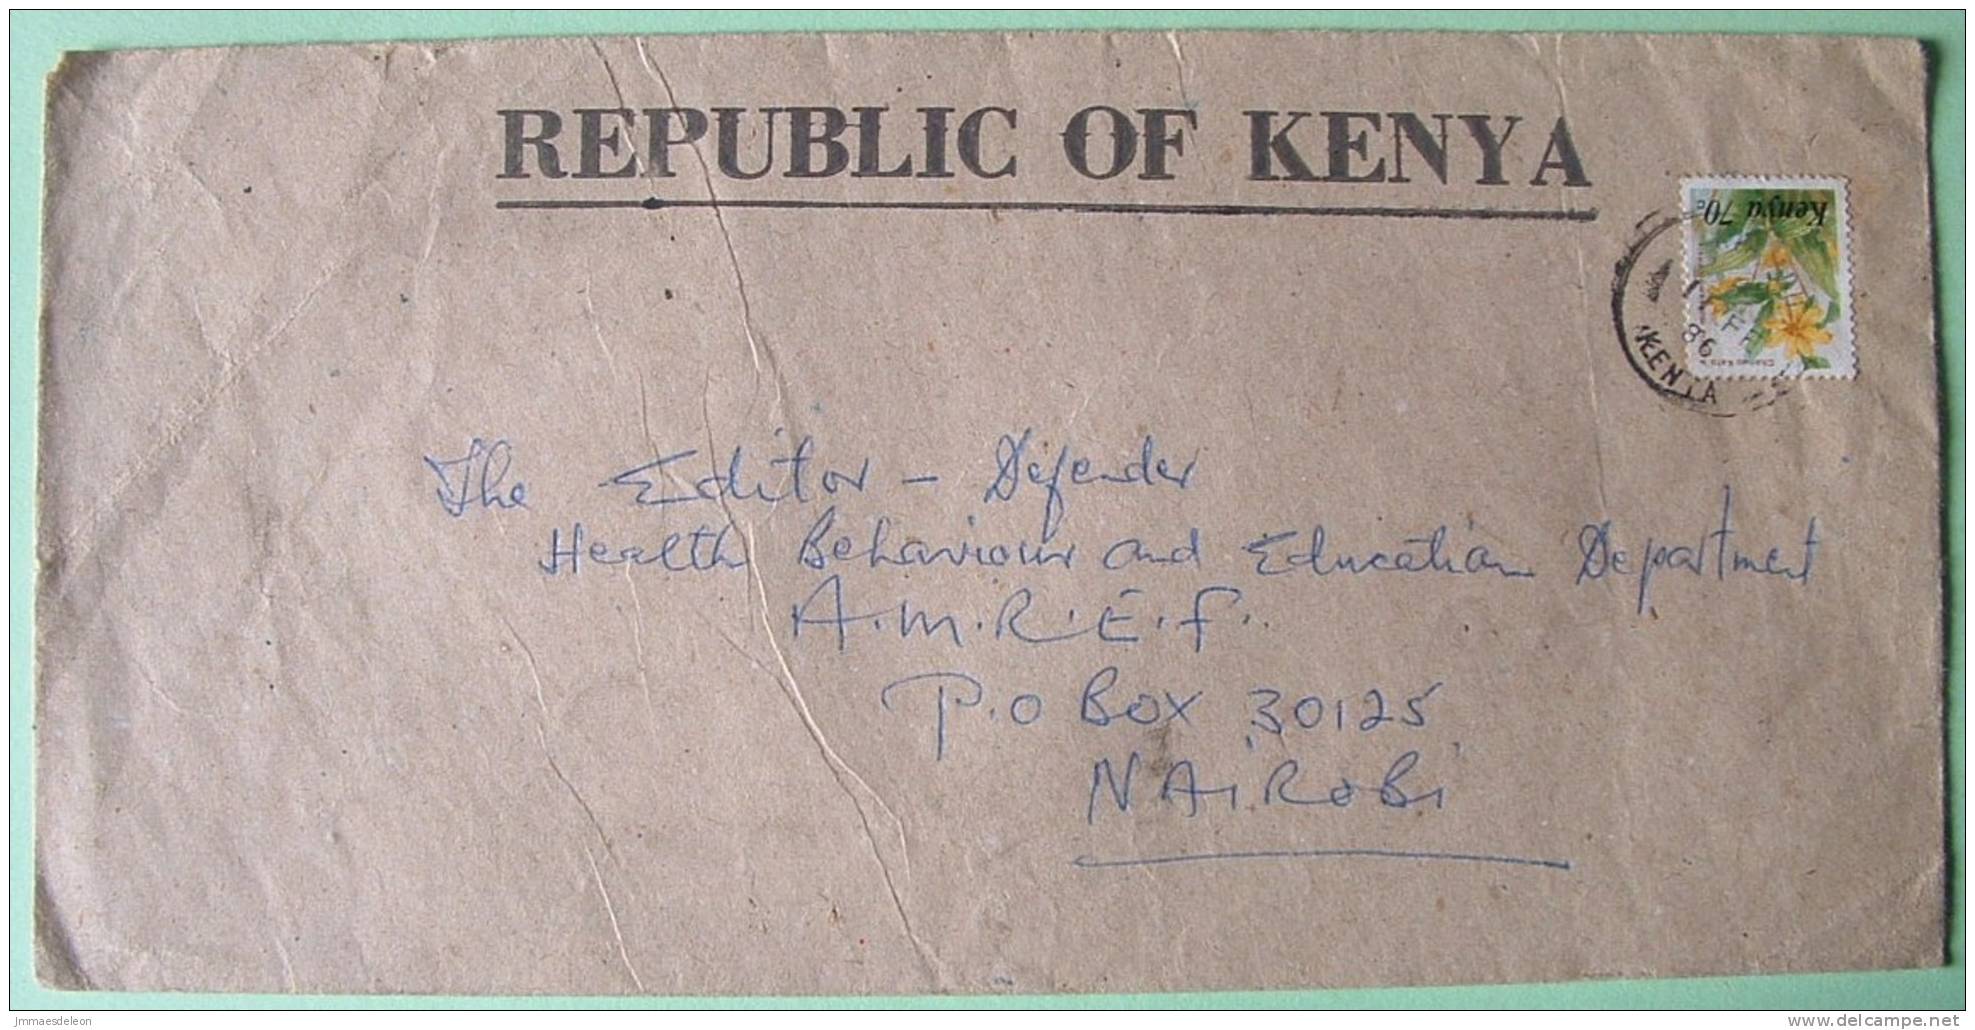 REPUBLIC OF KENYA
Kenya 70c
86
KENYA
The Editor - Defender
Health Behaviour and Education Department
A.M.R.E.F.
P.O Box 30125
NAiRoBi
jmmaesdeleon
www.delcampe.net